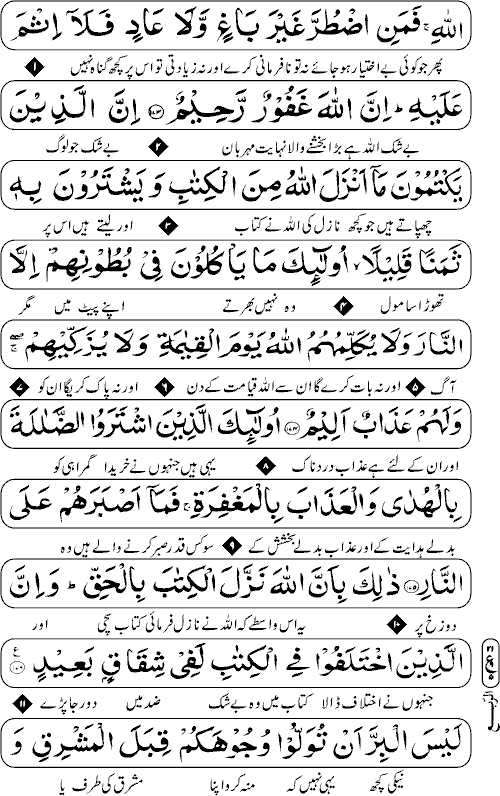 اللّٰهِ ۚ فَمَنِ اضْطُرَّ غَيْرَ بَاغٍ وَّلَا عَادٍ فَلَآ اِثْمَ
پھر جو کوئی بے اختیار ہو جائے نہ تو نافرمانی کرے اور نہ زیادتی تو اس پر کچھ گناہ نہیں ۱
عَلَيْهِ ؕ اِنَّ اللّٰهَ غَفُوْرٌ رَّحِيْمٌ ﴿۱۷۳﴾ اِنَّ الَّذِيْنَ
بے شک اللہ ہے بڑا بخشنے والا نہایت مہربان ۲ بے شک جو لوگ
يَكْتُمُوْنَ مَآ اَنْزَلَ اللّٰهُ مِنَ الْكِتٰبِ وَيَشْتَرُوْنَ بِهٖ
چھپاتے ہیں جو کچھ نازل کی اللہ نے کتاب ۳ اور لیتے ہیں اس پر
ثَمَنًا قَلِيْلًا ۙ اُولٰٓئِكَ مَا يَاْكُلُوْنَ فِيْ بُطُوْنِهِمْ اِلَّا
تھوڑا سا مول ۴ وہ نہیں بھرتے اپنے پیٹ میں مگر
النَّارَ وَلَا يُكَلِّمُهُمُ اللّٰهُ يَوْمَ الْقِيٰمَةِ وَلَا يُزَكِّيْهِمْ ۖۚ
آگ ۵ اور نہ بات کرے گا ان سے اللہ قیامت کے دن ۶ اور نہ پاک کریگا ان کو ۷
وَلَهُمْ عَذَابٌ اَلِيْمٌ ﴿۱۷۴﴾ اُولٰٓئِكَ الَّذِيْنَ اشْتَرَوُا الضَّلٰلَةَ
اور ان کے لئے ہے عذاب دردناک ۸ یہی ہیں جنہوں نے خریدا گمراہی کو
بِالْهُدٰى وَالْعَذَابَ بِالْمَغْفِرَةِ ۚ فَمَآ اَصْبَرَهُمْ عَلَى
بدلے ہدایت کے اور عذاب بدلے بخشش کے ۹ سو کس قدر صبر کرنے والے ہیں وہ
النَّارِ ﴿۱۷۵﴾ ذٰلِكَ بِاَنَّ اللّٰهَ نَزَّلَ الْكِتٰبَ بِالْحَقِّ ؕ وَاِنَّ
دوزخ پر ۱۰ یہ اس واسطے کہ اللہ نے نازل فرمائی کتاب سچی اور
الَّذِيْنَ اخْتَلَفُوْا فِي الْكِتٰبِ لَفِيْ شِقَاقٍۭ بَعِيْدٍ ﴿۱۷۶﴾ ع
جنہوں نے اختلاف ڈالا کتاب میں وہ بے شک ضد میں دور جا پڑے ۱۱
لَيْسَ الْبِرَّ اَنْ تُوَلُّوْا وُجُوْهَكُمْ قِبَلَ الْمَشْرِقِ وَ
نیکی کچھ یہی نہیں کہ منہ کرو اپنا مشرق کی طرف یا